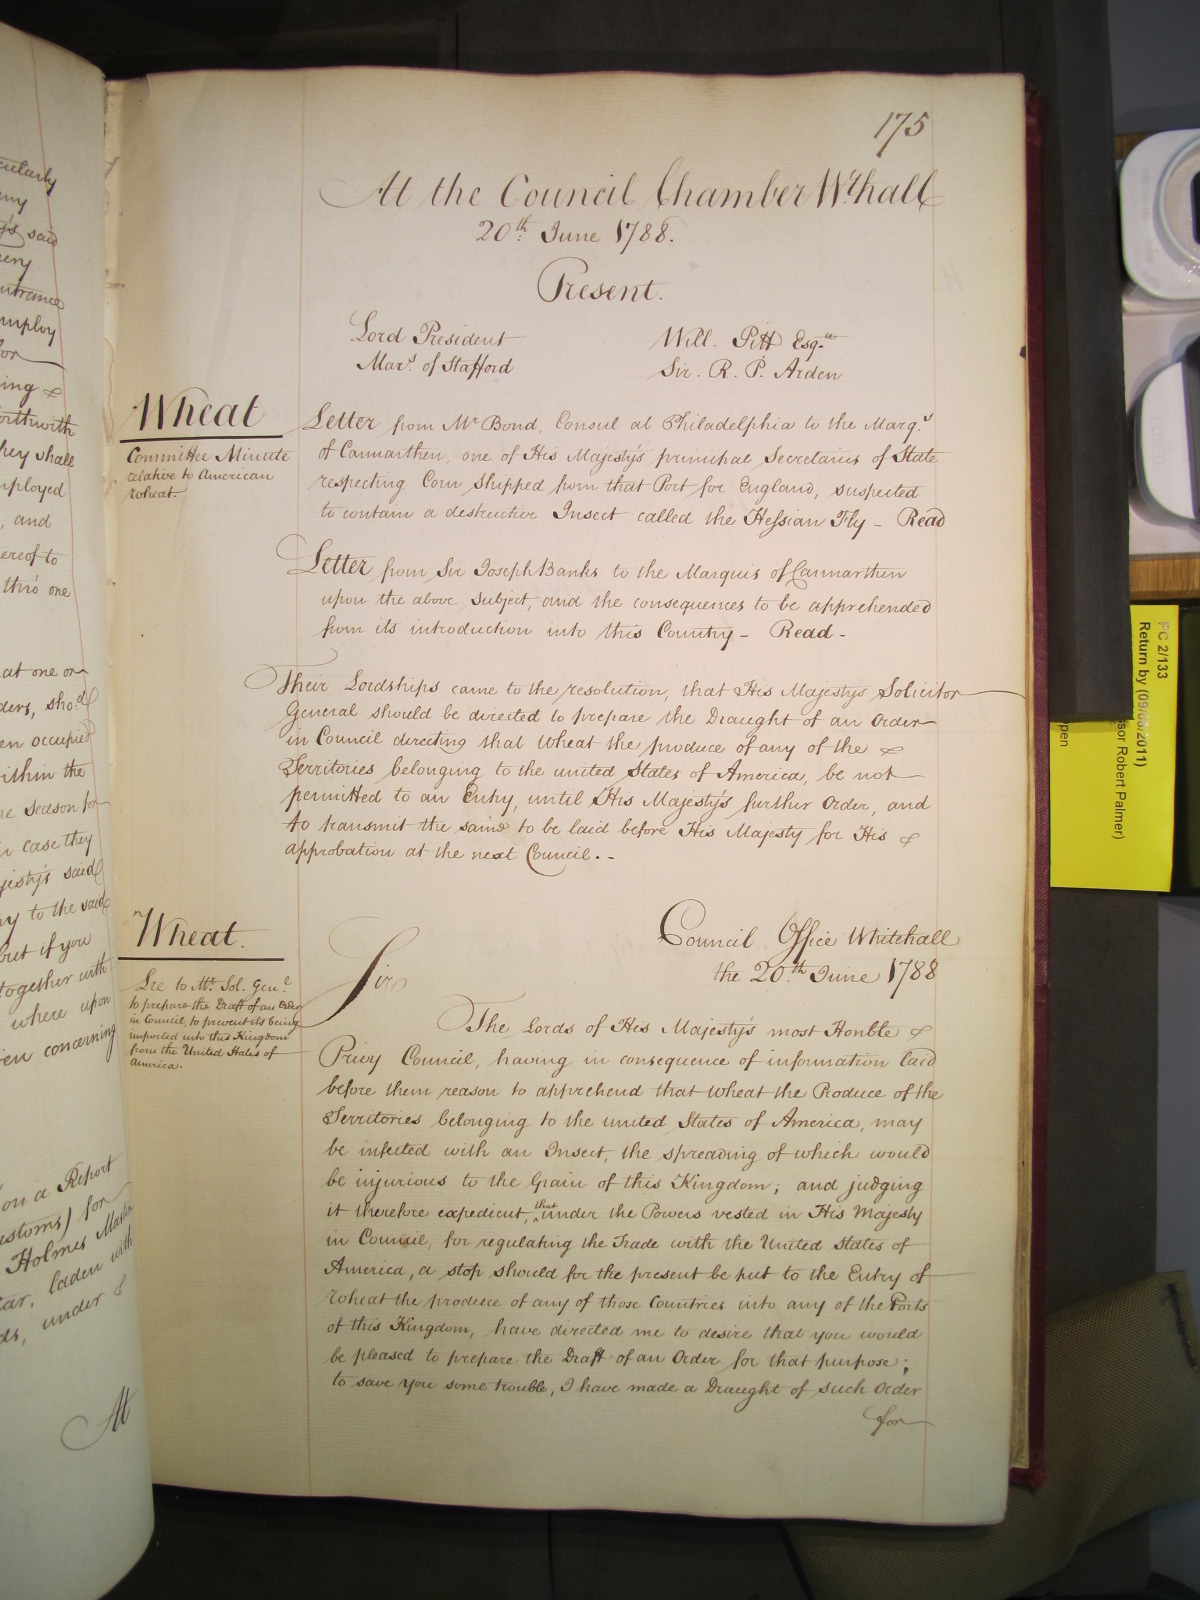 175
At the Council Chamber Wthall
20th June 1788.
Present.
Lord President
Marqs. of Stafford
Will. Pitt Esq.re
Sir. R. P. Arden
Wheat
Committee Minute
relative to American
Wheat.
Letter from Mr Bond, Consul at Philadelphia to the Marq.s
of Carmarthen, one of His Majesty's principal Secretaries of State
respecting Corn shipped from that Port for England, suspected
to contain a destructive Insect called the Hessian Fly - Read
Letter from Sir Joseph Banks to the Marquis of Carmarthen
upon the above Subject, and the consequences to be apprehended
from its introduction into this Country - Read -
Their Lordships came to the resolution, that His Majestys Solicitor
General should be directed to prepare the Draught of an Order
in Council directing that Wheat the produce of any of the
Territories belonging to the united States of America, be not
permitted to an Entry, until His Majesty's further Order, and
to transmit the same to be laid before His Majesty for His
approbation at the next Council. -
Wheat.
Lre to Mr. Sol. Gen.l
to prepare the Draft of an Order
in Council, to prevent its being
imported into this Kingdom
from the United States of
America.
Council Office Whitehall
the 20.th June 1788
Sir
The Lords of His Majesty's most Honble
Privy Council, having in consequence of information laid
before them reason to apprehend that Wheat the Produce of the
Territories belonging to the united States of America, may
be infected with an Insect, the spreading of which would
be injurious to the Grain of this Kingdom; and judging
it therefore expedient, that under the Powers vested in His Majesty
in Council, for regulating the Trade with the United States of
America, a stop should for the present be put to the Entry of
Wheat the produce of any of those Countries into any of the Ports
of this Kingdom, have directed me to desire that you would
be pleased to prepare the Draft of an Order for that purpose;
to save you some trouble, I have made a Draught of such Order
for
cularly
said
entrance
employ
for
ing &
forthwith
they shall
mployed
, and
ereof to
thro' one
at one or
ders, sho.d
en occupied
ithin the
he Season for
in case they
jesty's said
y to the said
but if you
together with
where upon
ven concerning
on a Report
ustoms) for
Holmes Master
laden with
under &
At
PC 2/133
Return by (09/08/2011)
ssor Robert Palmer)
pen